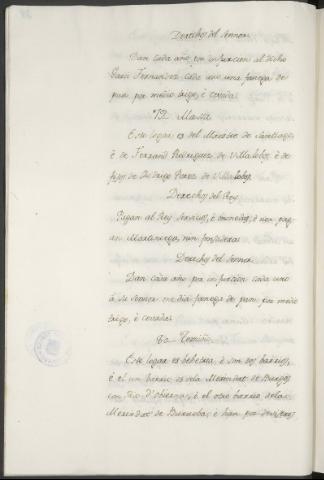 Derechos del Sennor
Dan cada año por infurcion al dicho
Garci Fernandez cada uno una fanega de
pan por medio trigo, è cevada
Este logar es del Maestre de Santiago,
è de Ferrand Rodriguez de Villalobos, è de
fijos de Rodrigo Perez de Villalobos
Derechos del Rey
Pagan al Rey servicios, è monedas, è non pag
an Martiniega, nin fonsadera
Derechos del Sennor
Dan cada año por infurcion cada uno
à su Sennor media fanega de pan por medio
trigo, è cevada
Este logar es behetria, è son dos barrios,
è el un barrio es de la Merindat de Burgos
con Rio d'Obierna, è el otro barrio de la
Merindat de Burueba, è han por